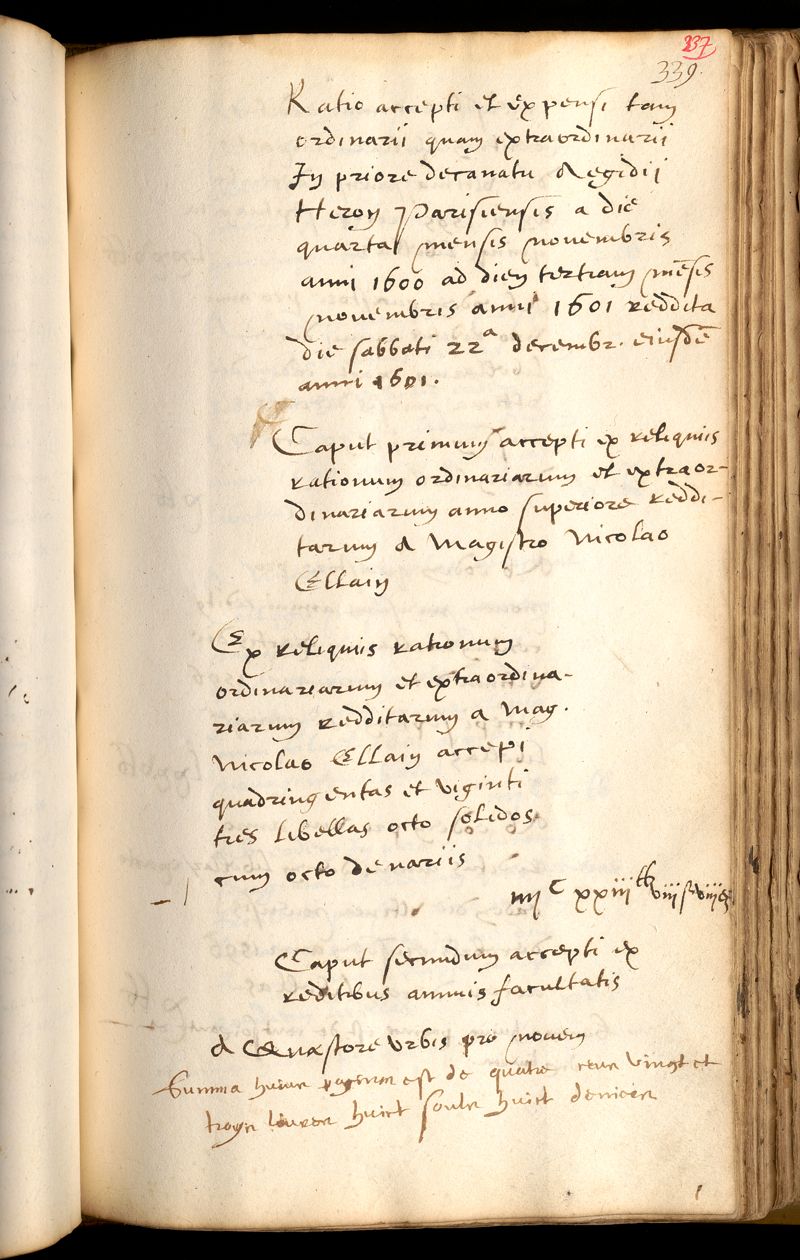 337
339.
Ratio accepti et expensi tam
ordinarii quam extraordinarii
In priore decanatu Aegidii
Heron Parisiensis a die
quarta mensis novembris
anni 1600 ad diem tertiam mēsis
novembris anni 1601 reddita
die sabbati 22a decembr. eiusdē
anni 1601.
Caput primum accepti ex reliquiis
rationum ordinariarum et extraor-
dinariarum anno superiore reddi-
tarum a Magistro Nicolao
Ellain
Ex reliquiis rationum
ordinariarum et extraordina-
riarum redditarum a Mag.
Nicolao Ellain accepi
quadringentas et viginti
tres libellas octo solidos
cum octo denariis
iiii C xxiii lb viii s viii d
Caput secundum accepti ex
reditibus annuis facultatis
A Quaestore urbis pro novem
Summa huius paginae est de quatre cens vingt et
troys livres huict soulz huict deniers